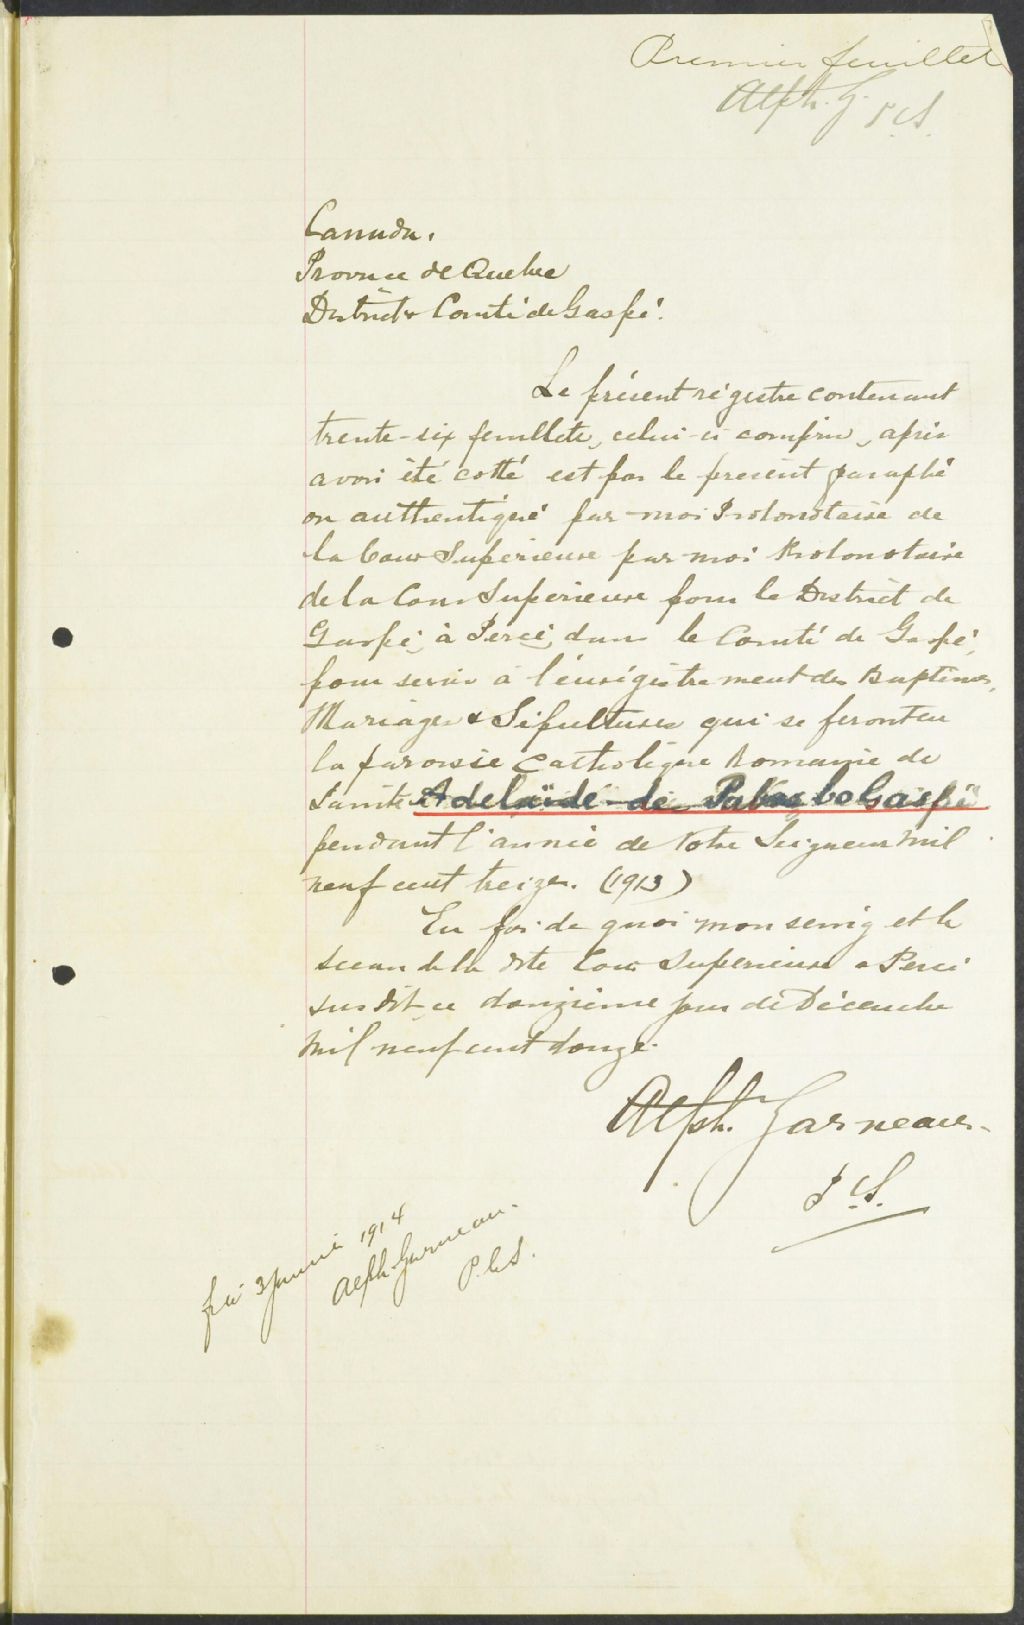 Premier feuillet
Alph. G. P.C.S.
Canada.
Province de Quebec
District & Comté de Gaspé.
Le présent régistre contenant
trente-six feuillets, celui-ci compris, après
avoir été cotté est par le present paraphé
ou authentiqué par moi Protonotaire de
la Cour Supérieure par moi Protonotaire
de la Cour Supérieure pour le District de
Gaspé, à Percé, dans le Comté de Gaspé,
pour servir à l'enrégistrement des Baptêmes,
Mariages & Sépultures qui se feront en
la paroisse Catholique Romaine de
Sainte Adelaïde de Pabos Co Gaspé
pendant l'année de Notre Seigneur mil
neuf cent treize. (1913)
En foi de quoi mon seing et le
sceau de la dite Cour Supérieure a Percé
susdit ce douzième jour de Décembre
mil neuf cent douze.
Alph. Garneau.
P.C.S.
3 Janvier 1914
Alph. Garneau.
P.C.S.